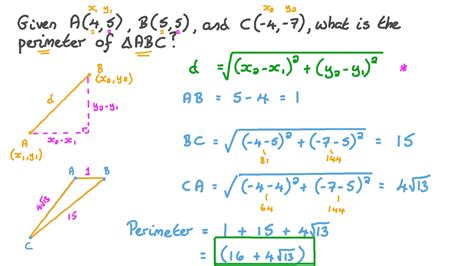 Given A(4,5), B(5,5), and C(-4,-7), what is the
x₁ y₁
x₂ y₂
perimeter of △ABC?
B
(x₂,y₂)
d
y₂-y₁
A
x₂-x₁
(x₁,y₁)
d = √(x₂-x₁)² + (y₂-y₁)² *
AB = 5-4 = 1
BC = √(-4-5)² + (-7-5)² = 15
81 144
CA = √(-4-4)² + (-7-5)² = 4√13
64 144
A 1 B
4√13
15
C
Perimeter = 1 + 15 + 4√13
= (16 + 4√13)